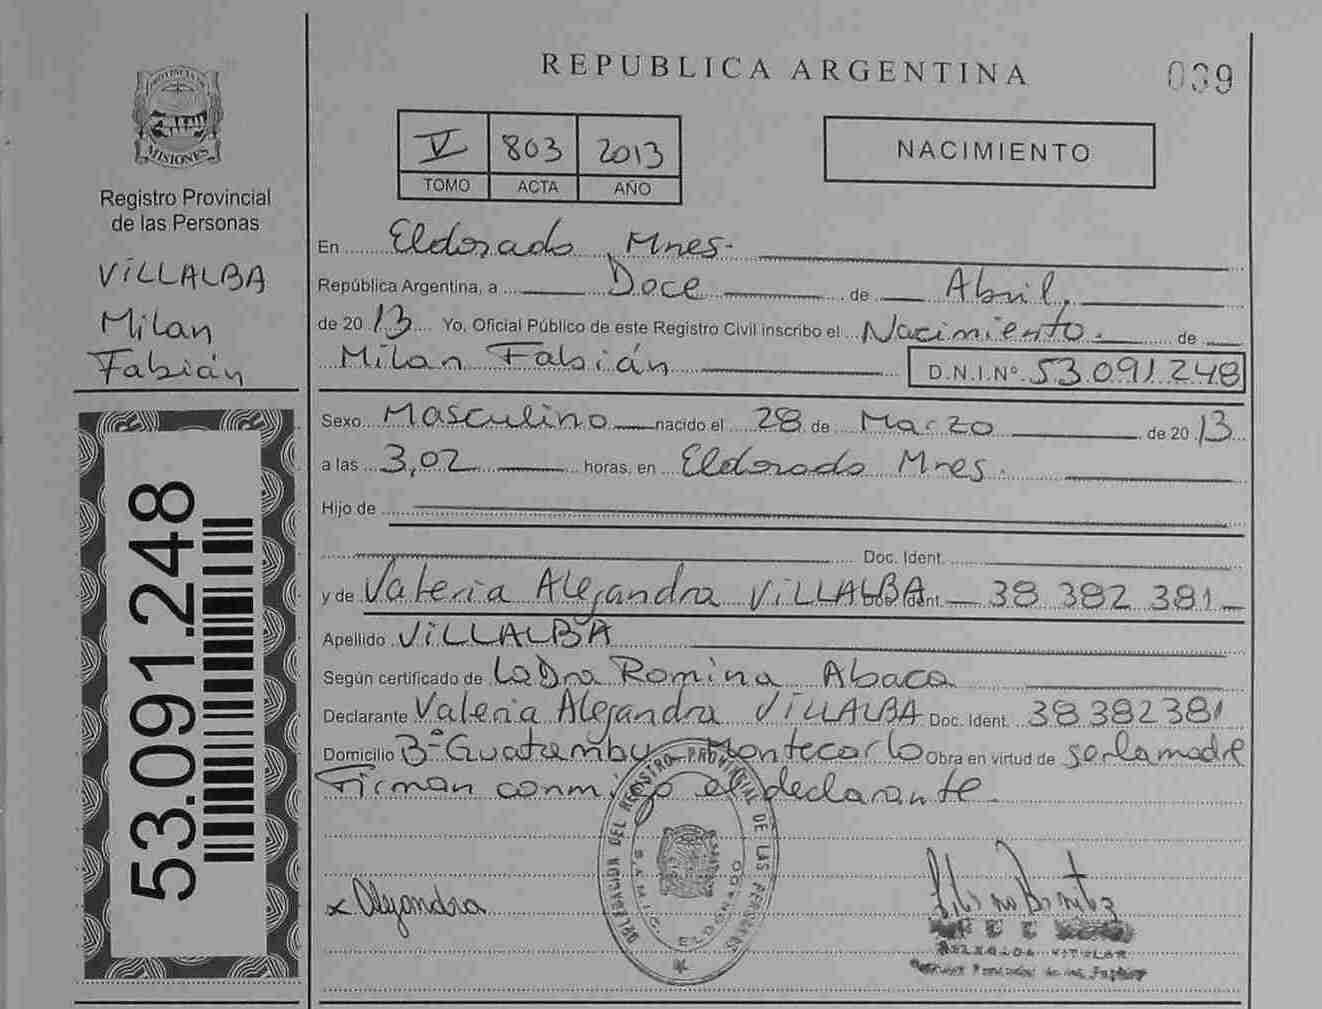 REPUBLICA ARGENTINA
039
PROVINCIA DE
MISIONES
Registro Provincial
de las Personas
VILLALBA
Milan
Fabián
53.091.248
V 803 2013
TOMO ACTA AÑO
NACIMIENTO
En Eldorado, Mnes.
República Argentina, a Doce de Abril,
de 2013 Yo, Oficial Público de este Registro Civil inscribo el Nacimiento. de
Milan Fabián D.N.I.Nº 53.091.248
Sexo Masculino nacido el 28 de Marzo de 2013
a las 3,02 horas, en Eldorado Mnes.
Hijo de
Doc. Ident.
y de Valeria Alejandra VILLALBA Doc. Ident. 38 382 381
Apellido VILLALBA
Según certificado de La Dra Romina Abaca
Declarante Valeria Alejandra VILLALBA Doc. Ident. 38 382 381
Domicilio Bº Guatambu Montecarlo Obra en virtud de ser la madre
Firman conmigo el declarante.
DELEGACION DEL REGISTRO PROVINCIAL DE LAS PERSONAS
ELDORADO
x Alejandra